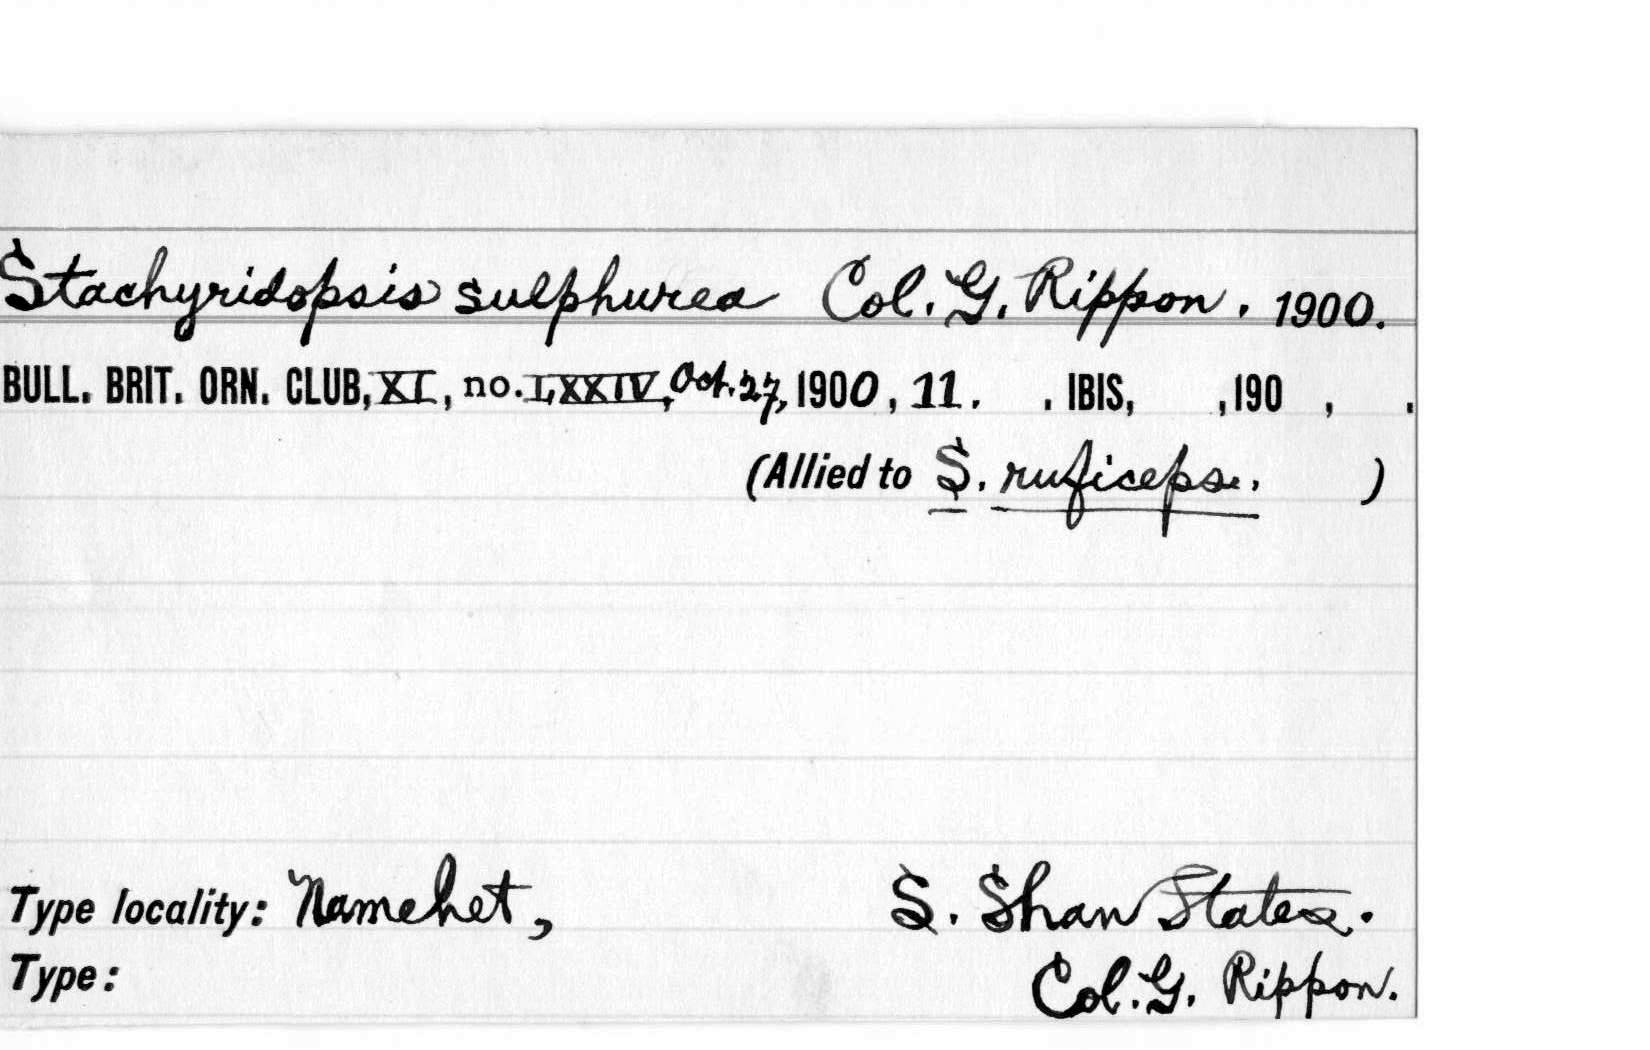 Stachyridopsis sulphurea Col. G. Rippon, 1900.
BULL. BRIT. ORN. CLUB, XI, no. LXXIV, Oct. 27, 1900, 11. . IBIS, ,190 , .
(Allied to S. ruficeps. )
Type locality: Namchet, S. Shan States.
Type: Col. G. Rippon.